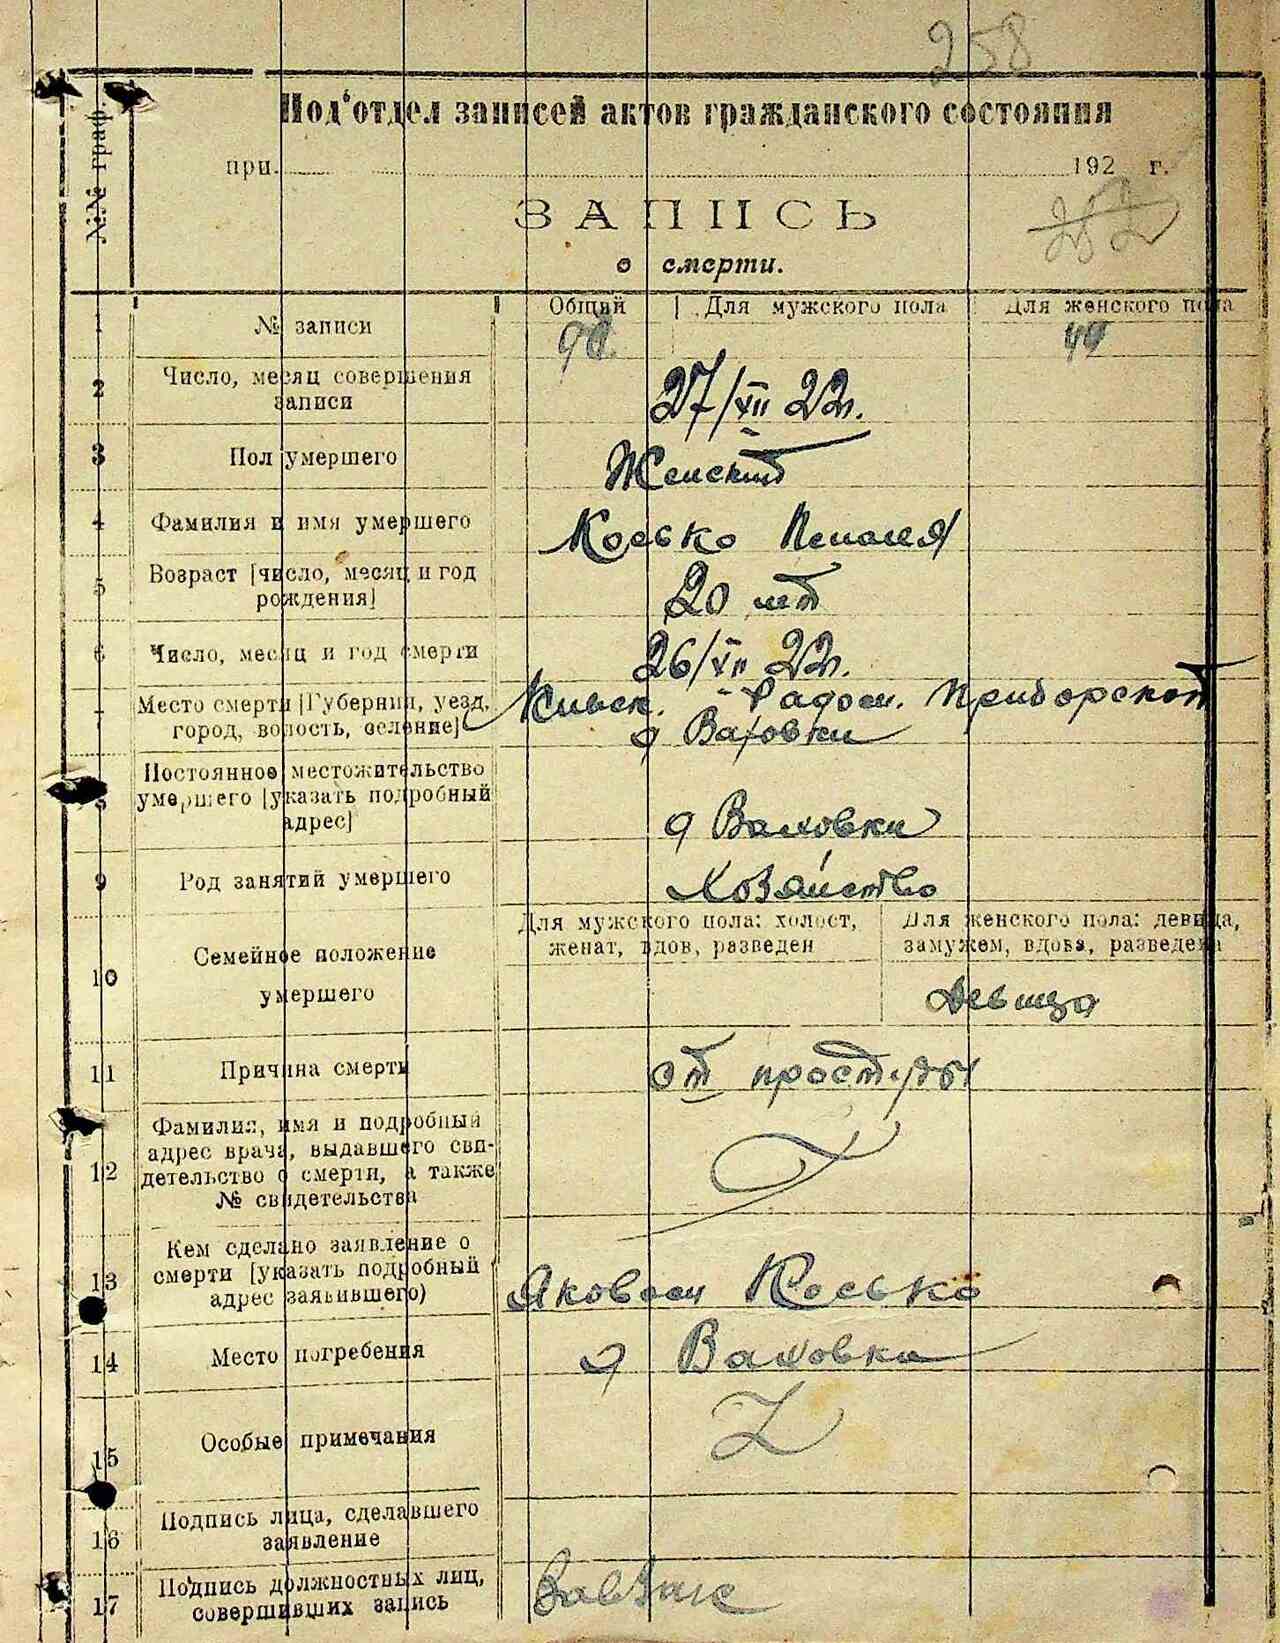 258
Под'отдел записей актов гражданского состояния
при 192 г.
252
ЗАПИСЬ
о смерти.
№№ граф.
Общий Для мужского пола Для женского пола
1 № записи
2 Число, месяц совершения
записи
27/XII 22г.
3 Пол умершего Женский
4 Фамилия и имя умершего Коське
5 Возраст [число, месяц и год
рождения]
20 лет
6 Число, месяц и год смерти 26/XII 22г.
7 Место смерти [Губерния, уезд,
город, волость, селение]
Киевск. Радом. Приборской
дВаховки
8 Постоянное местожительство
умершего [указать подробный
адрес]
д Ваховки
9 Род занятий умершего Хозяйство
10 Семейное положение
умершего
Для мужского пола: холост,
женат, вдов, разведен
Для женского пола: девица,
замужем, вдова, разведена
Девица
11 Причина смерти от простуды
12 Фамилия, имя и подробный
адрес врача, выдавшего сви-
детельство о смерти, а также
№ свидетельства
13 Кем сделано заявление о
смерти [указать подробный
адрес заявившего)
Яковом Коська
14 Место погребения д Ваховка
15 Особые примечания
16 Подпись лица, сделавшего
заявление
17 Подпись должностных лиц,
совершивших запись